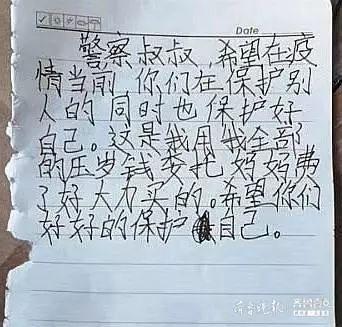 Date
警察叔叔,希望在疫
情当前,你们在保护别
人的同时也保护好
自己。这是我用我全部
的压岁钱委托妈妈费
了好大力买的。希望你们
好好的保护自己。
齐鲁晚报